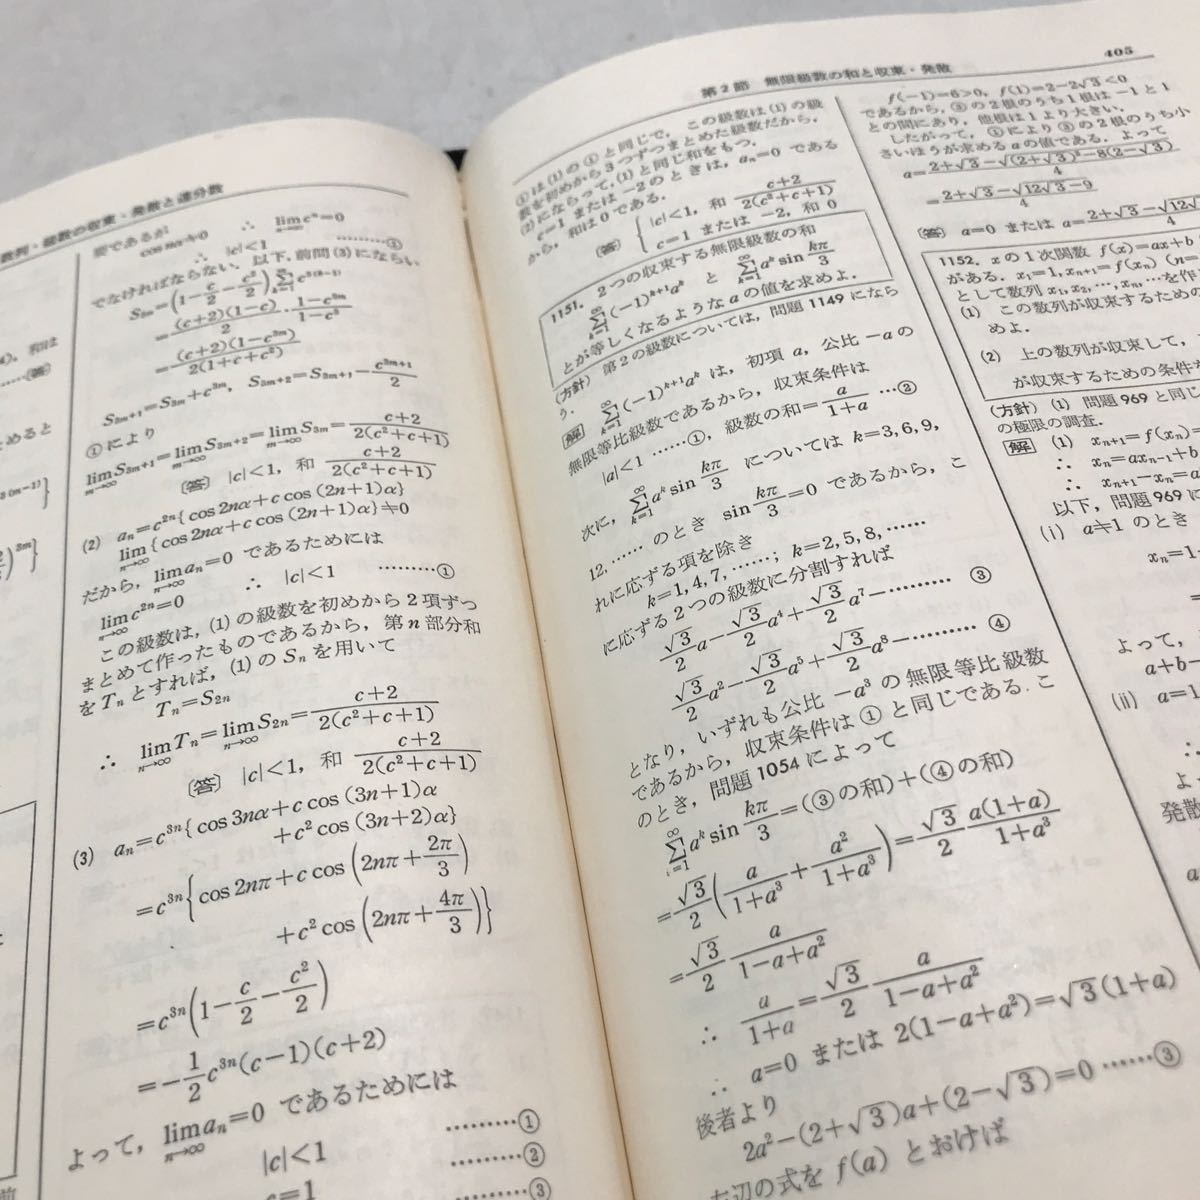 数列・級数の収束・発散と連分数
和は
……(答)
めると
要であるが
cos nα≒0 ∴ lim_{n→∞} c^n=0
∴ |c|<1 ………①
でなければならない。以下,前問(3)にならい
S_{3m}=(1-c/2-c²/2)∑_{k=1}^{m} c^{3(k-1)}
=(c+2)(1-c)/2・(1-c^{3m})/(1-c³)
=(c+2)(1-c^{3m})/2(1+c+c²)
S_{3m+1}=S_{3m}+c^{3m}, S_{3m+2}=S_{3m+1}-c^{3m+1}/2
①により
lim_{m→∞} S_{3m+1}=lim_{m→∞} S_{3m+2}=lim_{m→∞} S_{3m}=(c+2)/2(c²+c+1)
〔答〕 |c|<1, 和 (c+2)/2(c²+c+1)
(2) a_n=c^{2n}{cos 2nα+c cos (2n+1)α}
lim_{n→∞}{cos 2nα+c cos (2n+1)α}≒0
だから, lim_{n→∞} a_n=0 であるためには
lim_{n→∞} c^{2n}=0 ∴ |c|<1 ………①
この級数は,(1)の級数を初めから2項ずつ
まとめて作ったものであるから,第n部分和
をT_nとすれば,(1)のS_nを用いて
T_n=S_{2n}
∴ lim_{n→∞} T_n=lim_{n→∞} S_{2n}=(c+2)/2(c²+c+1)
〔答〕 |c|<1, 和 (c+2)/2(c²+c+1)
(3) a_n=c^{3n}{cos 3nα+c cos (3n+1)α
+c² cos (3n+2)α}
=c^{3n}{cos 2nπ+c cos (2nπ+2π/3)
+c² cos (2nπ+4π/3)}
=c^{3n}(1-c/2-c²/2)
=-1/2 c^{3n}(c-1)(c+2)
よって, lim_{n→∞} a_n=0 であるためには
|c|<1 ………①
c=1 ………②
………③
第2節 無限級数の和と収束・発散 405
①は(1)の①と同じで,この級数は(1)の級
数を初めから3つずつまとめた級数だから,
(2)にならって,(1)と同じ和をもつ.
c=1 または -2のときは, a_n=0 である
から,和は0である.
(答) { |c|<1, 和 (c+2)/2(c²+c+1)
c=1 または -2, 和 0
1151. 2つの収束する無限級数の和
∑_{k=1}^{∞}(-1)^{k+1}a^k と ∑_{k=1}^{∞} a^k sin kπ/3
とが等しくなるような a の値を求めよ.
(方針) 第2の級数については,問題1149になら
う.
[解] ∑_{k=1}^{∞}(-1)^{k+1}a^k は,初項 a,公比 -a の
無限等比級数であるから,収束条件は
|a|<1 ……①, 級数の和=a/(1+a) …②
次に, ∑_{k=1}^{∞} a^k sin kπ/3 については k=3, 6, 9,
12, …… のとき sin kπ/3=0 であるから, こ
れに応ずる項を除き
k=1, 4, 7, ……; k=2, 5, 8, ……
に応ずる2つの級数に分割すれば
√3/2 a-√3/2 a⁴+√3/2 a⁷-……… ③
√3/2 a²-√3/2 a⁵+√3/2 a⁸-……… ④
となり,いずれも公比 -a³ の無限等比級数
であるから,収束条件は①と同じである.こ
のとき,問題1054によって
∑_{i=1}^{∞} a^k sin kπ/3=(③の和)+(④の和)
=√3/2(a/(1+a³)+a²/(1+a³))=√3/2 a(1+a)/(1+a³)
=√3/2 a/(1-a+a²)
∴ a/(1+a)=√3/2 a/(1-a+a²)
∴ a=0 または 2(1-a+a²)=√3(1+a)
後者より
2a²-(2+√3)a+(2-√3)=0 ……③
左辺の式を f(a) とおけば
f(-1)=6>0, f(1)=2-2√3<0
であるから,③の2根のうち1根は -1と1
との間にあり,他根は1より大きい.
したがって,①により③の2根のうち小
さいほうが求める a の値である.よって
a=(2+√3-√((2+√3)²-8(2-√3)))/4
=(2+√3-√(12√3-9))/4
(答) a=0 または a=(2+√3-√(12√
1152. x の1次関数 f(x)=ax+b
がある. x₁=1, x_{n+1}=f(x_n) (n=
として数列 x₁, x₂, …, x_n, … を作
(1) この数列が収束するための
めよ.
(2) 上の数列が収束して,
が収束するための条件を
(方針) (1) 問題969と同じ
の極限の調査.
[解] (1) x_{n+1}=f(x_n)=
∴ x_n=ax_{n-1}+b
∴ x_{n+1}-x_n=a
以下,問題969に
(i) a≒1 のとき
x_n=1
よって,
a+b-
(ii) a=1
∴
よっ
発散